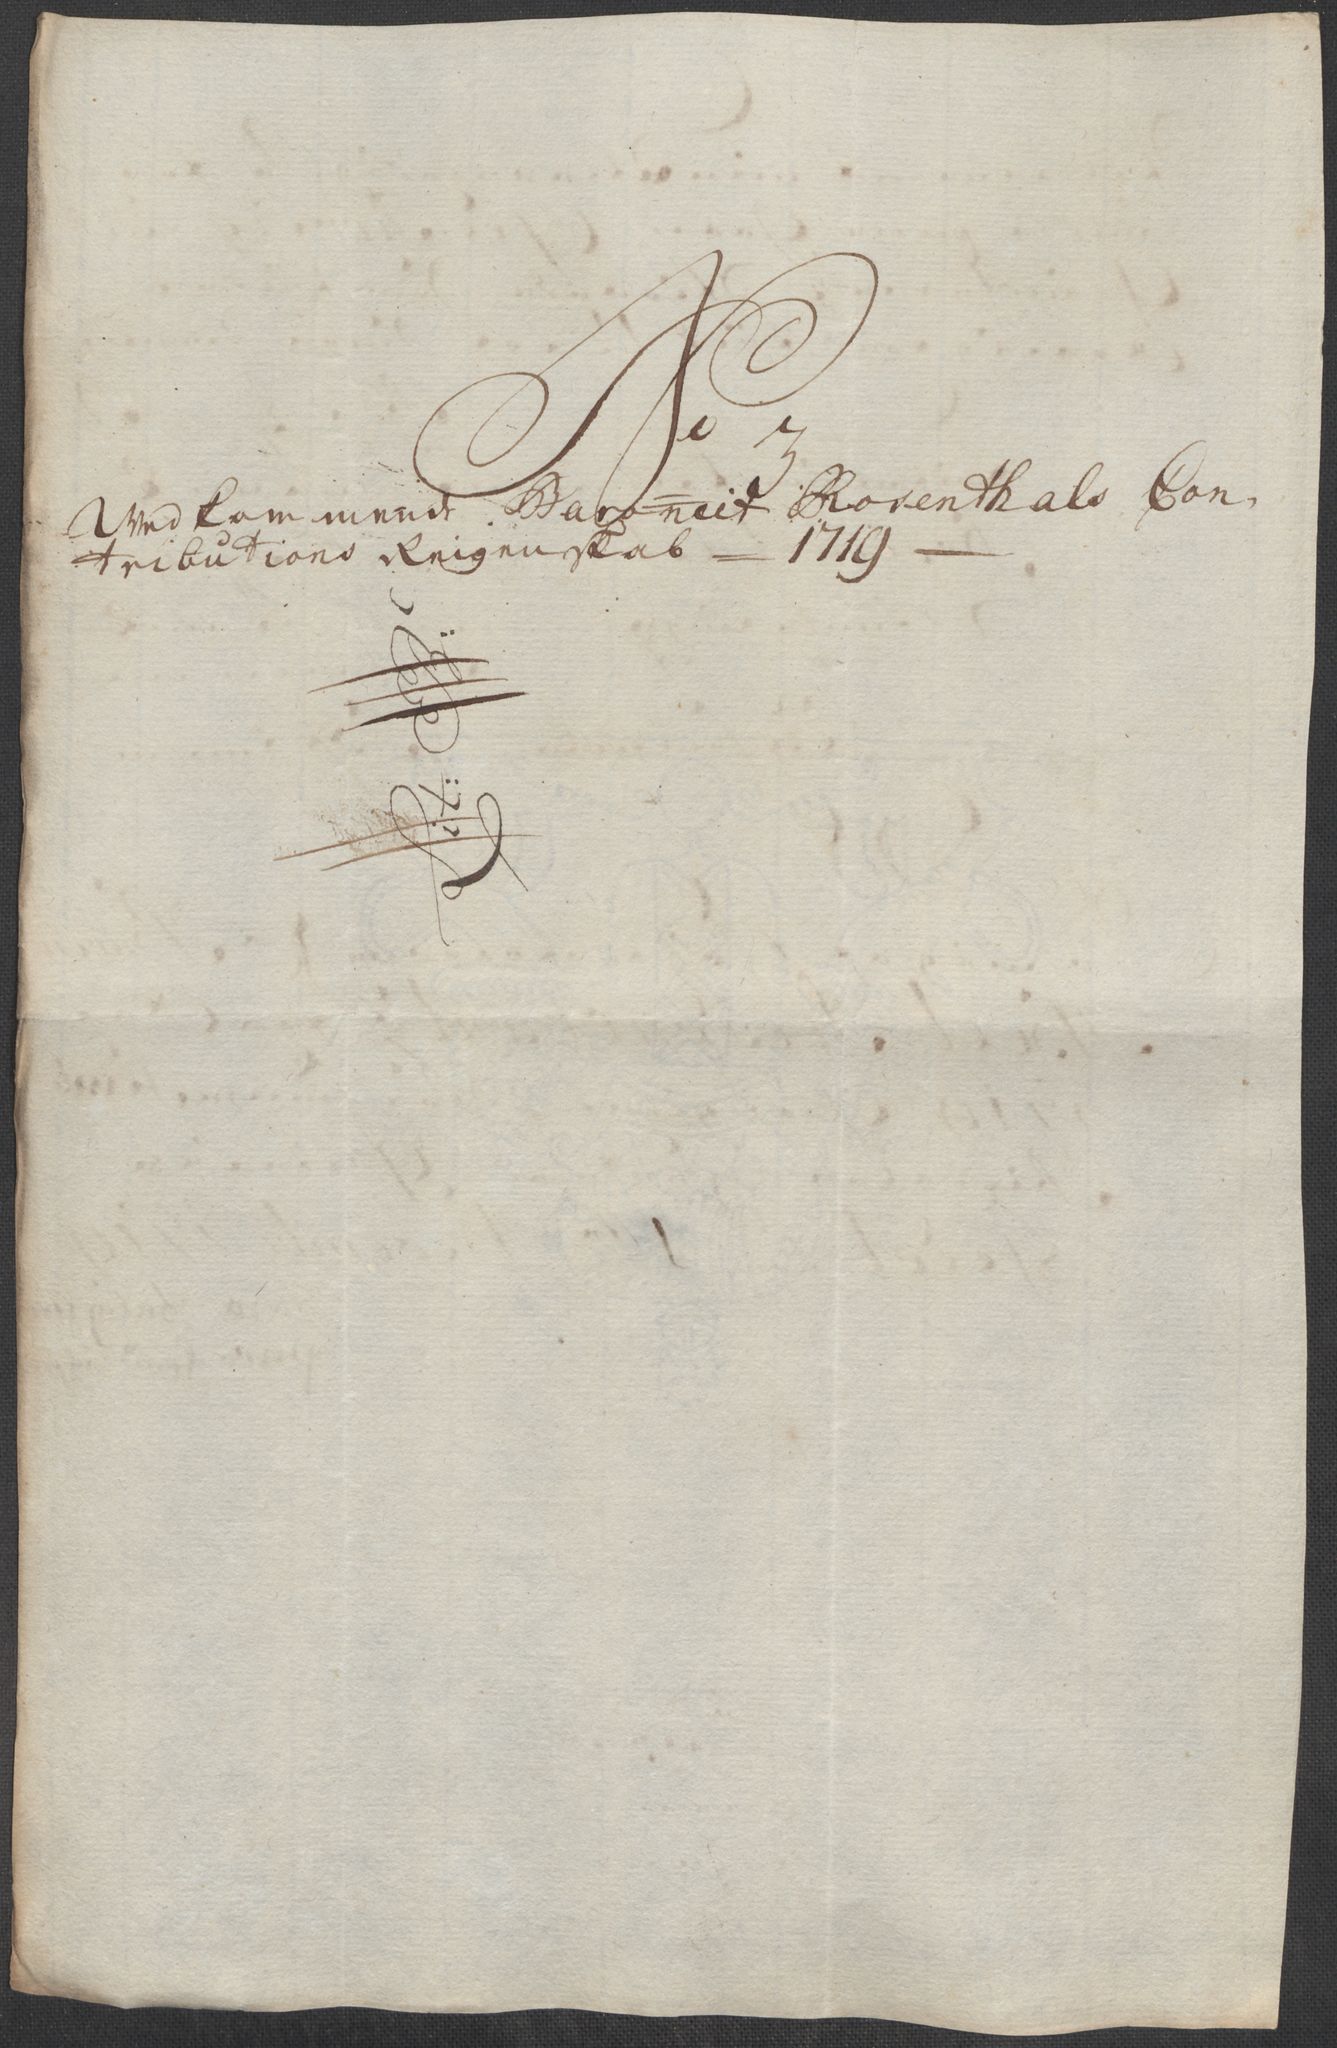 No 3
Vedkommende Baroneit Rosenthals Con-
tributions Reigenskab — 1719 —